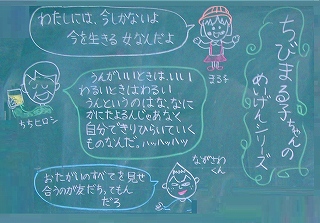 ちびまる子ちゃんの
めいげんシリーズ
わたしには、今しかないよ
今を生きる女なんだよ
まる子
うんがいいときは、いい
わるいときはわるい
うんというのはな、なに
かにたよるんじゃあなく
自分できりひらいていく
ものなんだ。ハッハッハッ
ちちヒロシ
おたがいのすべてを見せ
合うのが友だち、てもん
だろ
ながさわくん